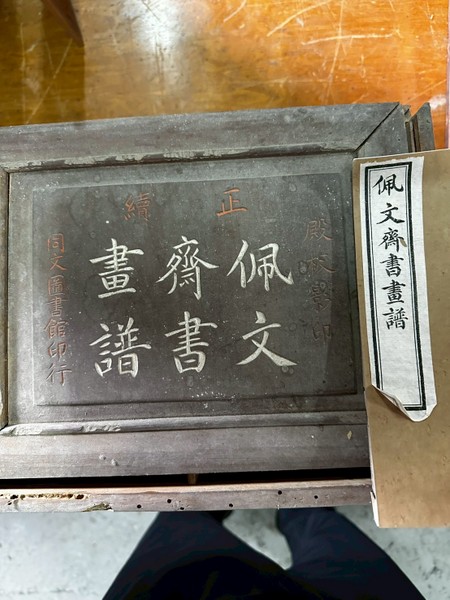 佩文齋書畫譜
正續
殿版影印
佩文
齋書
畫譜
同文圖書館印行